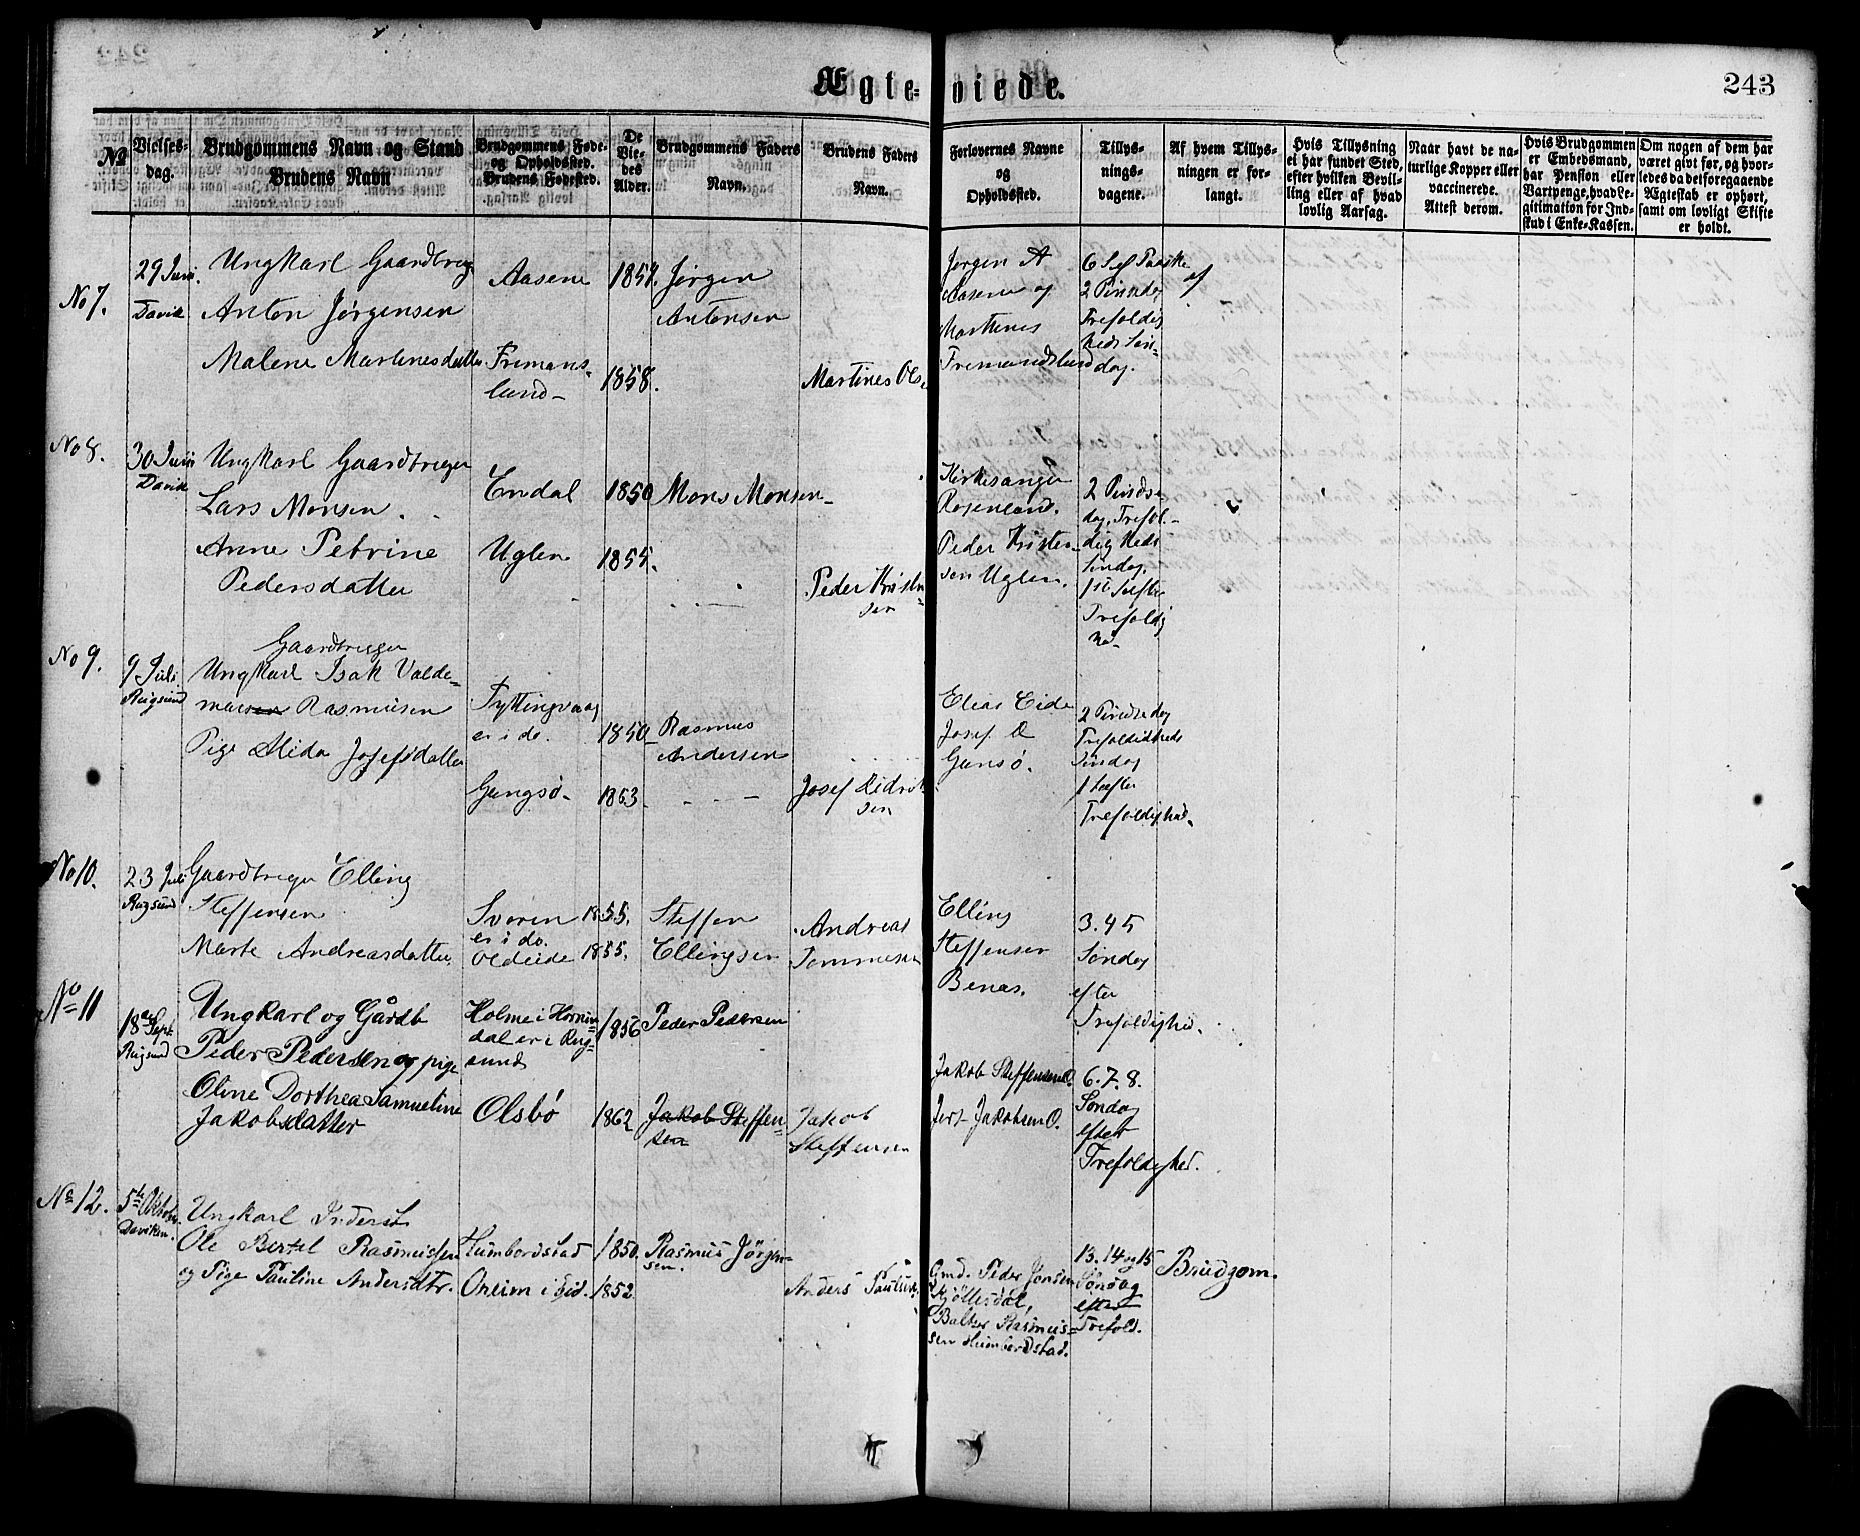 243
Ægte-viede.
№
Vielses-
dag.
Brudgommens Navn og Stand
Brudens Navn
Brudgommens Føde-
og Opholdssted.
Brudens Fødested.
De
Vie-
des
Alder.
Brudgommens Faders
Navn.
Brudens Faders
Navn.
Forlovernes Navne
og
Opholdssted.
Tillys-
nings-
dagene.
Af hvem Tillys-
ningen er for-
langt.
Hvis Tillysning
ei har fundet Sted,
efter hvilken Bevil-
ling eller af hvad
lovlig Aarsag.
Naar havt de na-
turlige Kopper eller
vaccinerede.
Attest derom.
Hvis Brudgommen
er Embedsmand,
har Pension eller
Vartpenge, hvad Le-
gitimation for Ind-
skud i Enke-Kassen.
Om nogen af dem har
været givt før, og hvor-
ledes da det foregaaende
Ægteskab er ophørt,
samt om lovligt Skifte
er holdt.
No 7.
29 Juni.
Davik
Ungkarl Gaardbruger
Anton Jørgensen
Malene Martinesdatter
Aasene
Fremans-
lund
1857.
1858.
Jørgen
Antonsen
Martines Ols
Jørgen A
Aasene og
Marthines
Fremandslund
6 S ef Paaske
2 Pinsedag
Trefoldig
heds Søn-
dag.
No 8.
30 Juni
Davik
Ungkarl Gaardbruger
Lars Monsen
Anne Petrine
Pedersdatter
Endal
Uglen
1850
1855.
Mons Monsen
Peder Kristen
sen
Kirkesanger
Rosenlund.
Peder Kristen-
sen Uglen.
2 Pindse
dag, Trefol-
dig Heds
Søndag,
1ste S efter
Trefoldig
hd.
No 9.
9 Juli.
Rugsund
Gaardbruger
Ungkarl Isak Valde-
marsen Rasmusen
Pige Alida Josefsdatter
Fyllingsvaag
er i do.
Gangsø
1850
1863
Rasmus
Andersen
Josef Didrik
sen
Elias Eide
Josef D
Gansø.
2 Pindsedag
Trefoldidheds
Søndag
1 S efter
Trefoldighed.
No 10.
23 Juli
Rugsund
Gaardbruger Elling
Steffensen
Marte Andreasdatter
Svoren
er i do.
Oldeide
1855.
1855.
Steffen
Ellingsen
Andreas
Tommesen
Elling
Steffensen
Benas.
3.45
Søndag
efter
Trefoldighed.
No 11
18de Sept.
Rugsund
Ungkarl og Gårdb
Peder Pedersen og pige
Oline Dorthea Samueline
Jakobsdatter
Holme i Hornin-
dal er i Rug-
sund
Olsbø
1856
1862
Peder Pedersen
Jakob Steffen-
sen
Jakob
Steffensen
Jakob Steffensen O.
Jert Jakobsen O.
6.7.8.
Søndag
efter
Trefoldighed.
No 12.
5te Oktober
Daviken.
Ungkarl Inderst
Ole Bertel Rasmussen
og Pige Pauline Andersdtr.
Humbordstad
Oreim i Eid.
1850.
1852
Rasmus Jørgen-
sen.
Anders Paulsen
Gmd. Peder Jonsen
Kjøllesdal,
Balter Rasmus-
sen Humbordstad.
13. 14 og 15
Søndag
efter
Trefold.
Brudgom.